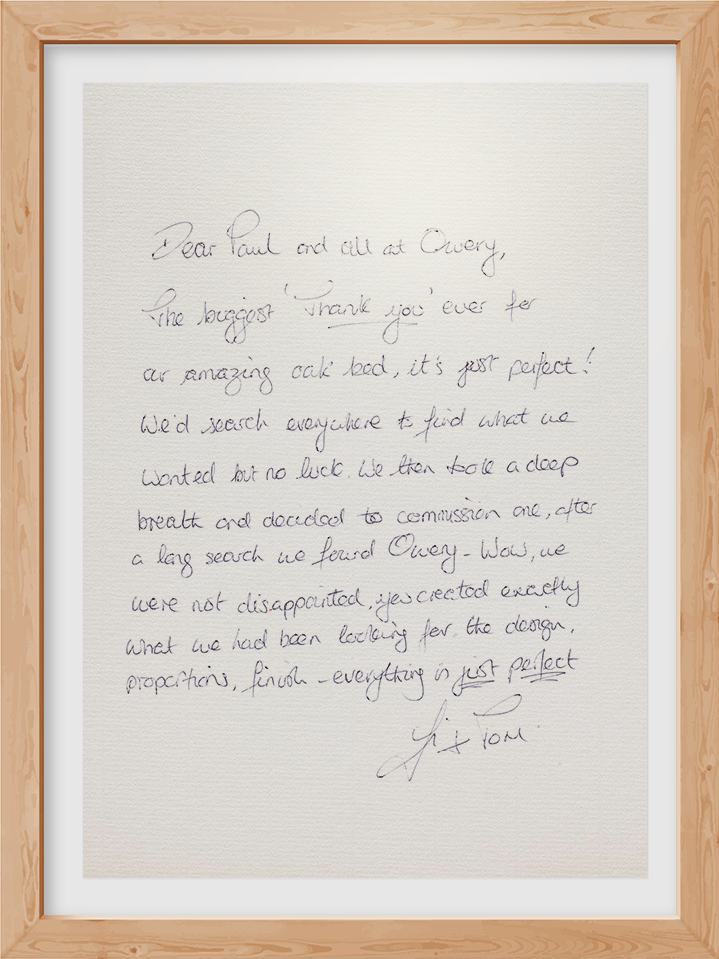 Dear Paul and all at Qwery,
The biggest 'Thank you' ever for
our amazing oak bed, it's just perfect!
We'd search everywhere to find what we
wanted but no luck. We then took a deep
breath and decided to commission one, after
a long search we found Qwery - Wow, we
were not disappointed, you created exactly
what we had been looking for. the design,
proportions, finish - everything is just perfect
+ Tom